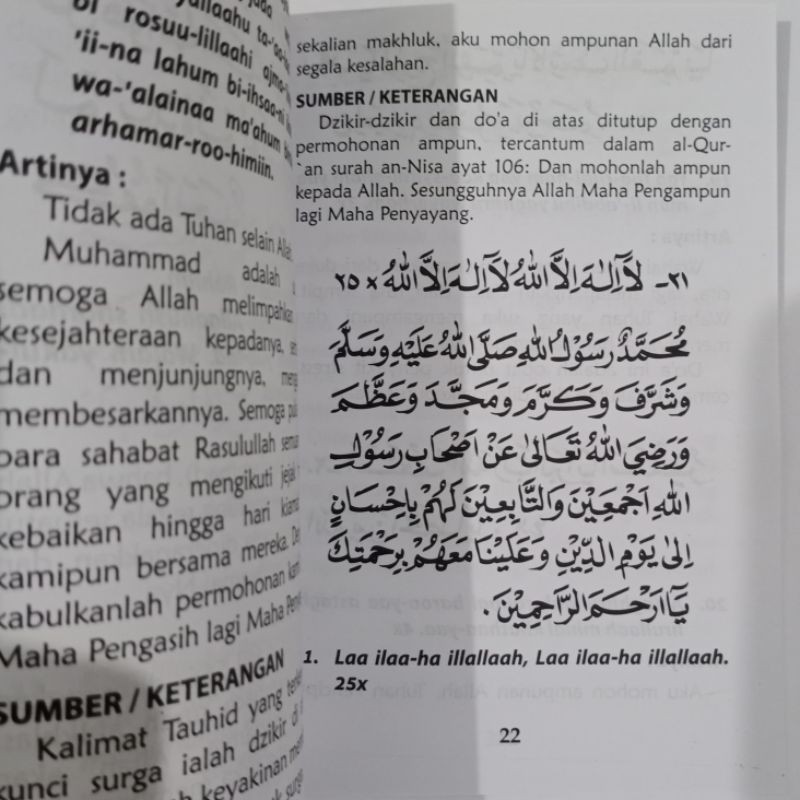 ullaahu ta-'aa
bi rosuu-lillaahi ajma-
'ii-na lahum bi-ihsaa-ni
wa-'alainaa ma'ahum
arhamar-roo-himiin.
Artinya :
Tidak ada Tuhan selain Allah
Muhammad adalah
semoga Allah melimpahkan
kesejahteraan kepadanya,
dan menjunjungnya,
membesarkannya. Semoga
para sahabat Rasulullah
orang yang mengikuti jejak
kebaikan hingga hari kiamat
kamipun bersama mereka.
kabulkanlah permohonan
Maha Pengasih lagi Maha
SUMBER / KETERANGAN
Kalimat Tauhid yang
kunci surga ialah dzikir
keyakinan
sekalian makhluk, aku mohon ampunan Allah dari
segala kesalahan.
SUMBER / KETERANGAN
Dzikir-dzikir dan do'a di atas ditutup dengan
permohonan ampun, tercantum dalam al-Qur-
`an surah an-Nisa ayat 106: Dan mohonlah ampun
kepada Allah. Sesungguhnya Allah Maha Pengampun
lagi Maha Penyayang.
٢١- لَآاِلٰهَ اِلَّا اللهُ لَآاِلٰهَ اِلَّا اللهُ × ٢٥
مُحَمَّدٌ رَسُوْلُ اللهِ صَلَّى اللهُ عَلَيْهِ وَسَلَّمَ
وَشَرَّفَ وَكَرَّمَ وَمَجَّدَ وَعَظَّمَ
وَرَضِيَ اللهُ تَعَالٰى عَنْ اَصْحَابِ رَسُوْلِ
اللهِ اَجْمَعِيْنَ وَالتَّابِعِيْنَ لَهُمْ بِاِحْسَانٍ
اِلٰى يَوْمِ الدِّيْنِ وَعَلَيْنَا مَعَهُمْ بِرَحْمَتِكَ
يَآاَرْحَمَ الرَّاحِمِيْنَ.
1. Laa ilaa-ha illallaah, Laa ilaa-ha illallaah.
25x
22